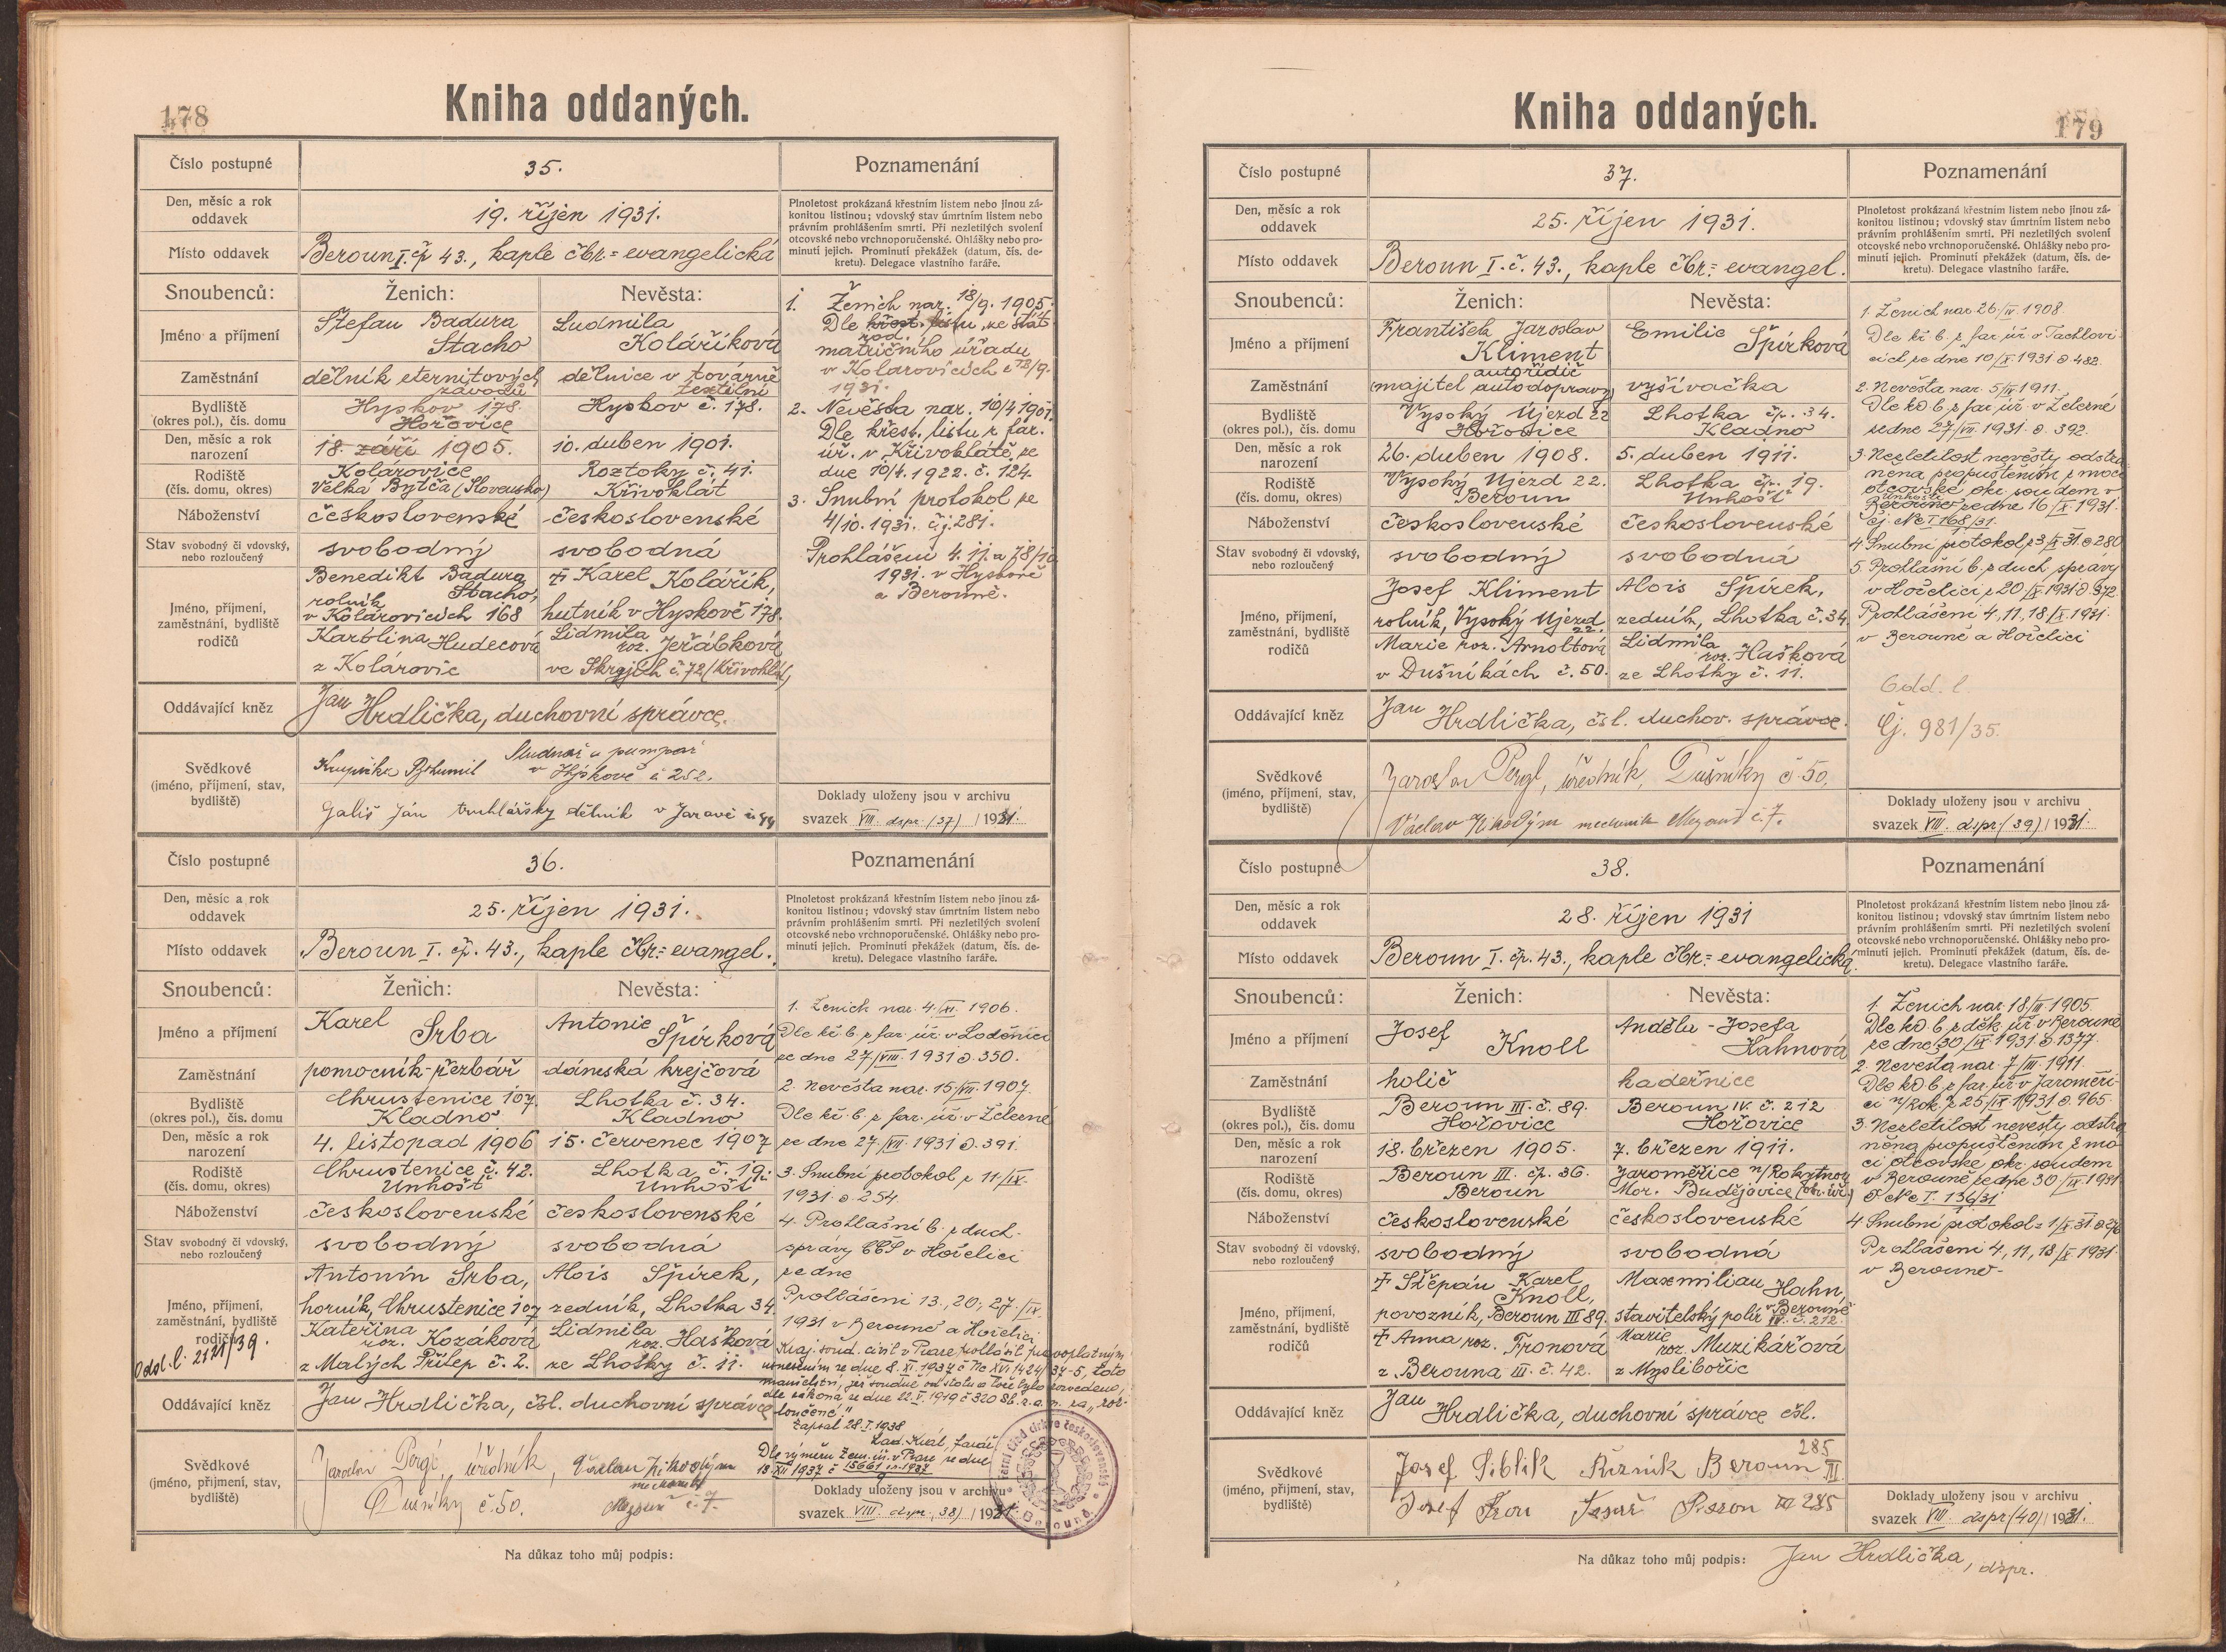 178
Kniha oddaných.
Číslo postupné
35.
Poznamenání
Den, měsíc a rok
oddavek
19. říjen 1931.
Místo oddavek
Beroun I. čp 43., kaple čbr= evangelická
Plnoletost prokázaná křestním listem nebo jinou zá-
konitou listinou; vdovský stav úmrtním listem nebo
právním prohlášením smrti. Při nezletilých svolení
otcovské nebo vrchnoporučenské. Ohlášky nebo pro-
minutí jejich. Prominutí překážek (datum, čís. de-
kretu). Delegace vlastního faráře.
Snoubenců:
Ženich:
Nevěsta:
Jméno a příjmení
Štefan Badura
Stacho
Ludmila
Koláříková
Zaměstnání
dělník eternitových
závodů
dělnice v továrně
textilní
Bydliště
(okres pol.), čís. domu
Hyskov 178.
Hořovice
Hyskov č. 178.
Den, měsíc a rok
narození
18. září 1905.
10. duben 1901.
Rodiště
(čís. domu, okres)
Kolárovice
Velká Bytča (Slovensko)
Roztoky č. 41.
Křivoklát
Náboženství
československé
československé
Stav svobodný či vdovský,
nebo rozloučený
svobodný
svobodná
Jméno, příjmení,
zaměstnání, bydliště
rodičů
Benedikt Badura
Stacho,
rolník
v Kolárovicích 168
Karolina Hudecová
z Kolárovic
† Karel Kolářík,
hutník v Hyskově 178.
Lidmila
roz. Jeřábková
ve Skryjích č. 72 (Křivoklát)
1. Ženich nar. 18/9. 1905.
Dle křest. listu ze stát.
rod.
matričního úřadu
v Kolárovicích z 12/9.
1931.
2. Nevěsta nar. 10/4 1901.
Dle křest. listu z far.
úř. v Křivoklátě, ze
dne 10/4. 1922. č. 124.
3. Snubní protokol ze
4/10. 1931. čj. 281.
Prohlášeni 4. 11. a 18/10
1931. v Hyskově
a Berouně.
Oddávající kněz
Jan Hrdlička, duchovní správce.
Svědkové
(jméno, příjmení, stav,
bydliště)
Krupička Bohumil
Studnař a pumpař
v Hýskově č 252.
Gališ Ján truhlářsky dělnik v Jarově
Doklady uloženy jsou v archivu
svazek VIII. dspr. (37) 1931.
Číslo postupné
36.
Poznamenání
Den, měsíc a rok
oddavek
25. říjen 1931.
Místo oddavek
Beroun I. čp. 43., kaple čbr= evangel.
Plnoletost prokázaná křestním listem nebo jinou zá-
konitou listinou; vdovský stav úmrtním listem nebo
právním prohlášením smrti. Při nezletilých svolení
otcovské nebo vrchnoporučenské. Ohlášky nebo pro-
minutí jejich. Prominutí překážek (datum, čís. de-
kretu). Delegace vlastního faráře.
Snoubenců:
Ženich:
Nevěsta:
Jméno a příjmení
Karel Srba
Antonie
Špírková
Zaměstnání
pomocník-řezbář
dámská krejčová
Bydliště
(okres pol.), čís. domu
Chrustenice 107.
Kladno
Lhotka č. 34.
Kladno
Den, měsíc a rok
narození
4. listopad 1906
15. červenec 1907
Rodiště
(čís. domu, okres)
Chrustenice č. 42.
Unhošt
Lhotka č. 19.
Unhošt
Náboženství
československé
československé
Stav svobodný či vdovský,
nebo rozloučený
svobodný
svobodná
Jméno, příjmení,
zaměstnání, bydliště
rodičů
Odd. l. 2121/39.
Antonín Srba,
horník, Chrustenice 107
Kateřina
roz. Kozáková
z Malých Přílep č. 2.
Alois Špírek,
zedník, Lhotka 34.
Lidmila
roz. Hašková
ze Lhotky č. 11.
1. Ženich nar. 4/XI. 1906.
Dle kř. l. z far. úř. v Loděnici
ze dne 27/VIII. 1931 č. 350.
2. Nevěsta nar. 15/VII. 1907
Dle kř. l. z far. úř. v Železné
ze dne 27/VII. 1931 č. 391.
3. Snubní protokol z 11/IX.
1931. č. 254.
4. Prohlášní l. z duch.
správy CČS v Hořelici
ze dne
Prohlášeni 13., 20., 27./IX.
1931 v Berouně a Hořelici
Kraj. soud. civil. v Praze prohlásil pravoplatným
usnesením ze dne 8. XI. 1937 č Nc XVI. 1424/37-5, toto
manželství, jež soudně od stolu a lože bylo rozvedeno,
dle zákona ze dne 22. V. 1919 č 320 Sb. z. a. n. za „roz-
loučené."
Zapsal 28. I. 1938
Lad. Král, farář
Dle výměru Zem. úř. v Praze ze dne
18. XII 1937 č
Oddávající kněz
Jan Hrdlička, čsl. duchovní správce
Svědkové
(jméno, příjmení, stav,
bydliště)
Jaroslav Pergl, úředník,
Dušníky č. 50.
Václav Nikodým
mechanik
č. 7.
Doklady uloženy jsou v archivu
svazek VIII. dspr. (38) 1931.
Farní úřad církve československé
Beroun
Na důkaz toho můj podpis:
179
Kniha oddaných.
Číslo postupné
37.
Poznamenání
Den, měsíc a rok
oddavek
25. říjen 1931.
Místo oddavek
Beroun I. č. 43., kaple čbr= evangel.
Plnoletost prokázaná křestním listem nebo jinou zá-
konitou listinou; vdovský stav úmrtním listem nebo
právním prohlášením smrti. Při nezletilých svolení
otcovské nebo vrchnoporučenské. Ohlášky nebo pro-
minutí jejich. Prominutí překážek (datum, čís. de-
kretu). Delegace vlastního faráře.
Snoubenců:
Ženich:
Nevěsta:
Jméno a příjmení
František Jaroslav
Kliment
Emilie Špírková
Zaměstnání
autořidič
(majitel autodopravy)
vyšívačka
Bydliště
(okres pol.), čís. domu
Vysoký Újezd 22
Hořovice
Lhotka čp. 34.
Kladno
Den, měsíc a rok
narození
26. duben 1908.
5. duben 1911.
Rodiště
(čís. domu, okres)
Vysoký Ujezd 22.
Beroun
Lhotka čp. 19.
Unhošt
Náboženství
československé
československé
Stav svobodný či vdovský,
nebo rozloučený
svobodný
svobodná
Jméno, příjmení,
zaměstnání, bydliště
rodičů
Josef Kliment
rolník, Vysoký Ujezd
22.
Marie roz. Arnoltová
v Dušníkách č. 50.
Alois Špírek,
zedník, Lhotka č. 34
Lidmila
roz. Hašková
ze Lhotky č. 11.
1. Ženich nar. 26/IV. 1908.
Dle kř. l. z far. úř. v Tachlovi-
cích ze dne 10/X. 1931 č. 482.
2. Nevěsta nar. 5/IV. 1911.
Dle kř. l. z far. úř. v Železné
ze dne 27/VII. 1931. č. 392.
3. Nezletilost nevěsty odstra-
něna propuštěním z moci
otcovské okr. soudem v
Unhošti
Berouně ze dne 16/X. 1931.
čj. Nc I 168/31.
4. Snubní protokol z 3/X. 31. č 280
5. Prohlášní l. z duch. správy
v Hořelici z 20/X. 1931 č. 372.
Prohlášení 4., 11., 18./X. 1931.
v Berouně a Hořelici
Odd. l.
Čj. 981/35.
Oddávající kněz
Jan Hrdlička, čsl. duchov. správce.
Svědkové
(jméno, příjmení, stav,
bydliště)
Jaroslav Pergl, úředník, Dušníky č. 50.
Václav Nikodým mechanik č. 7.
Doklady uloženy jsou v archivu
svazek VIII. dspr. (39) 1931.
Číslo postupné
38.
Poznamenání
Den, měsíc a rok
oddavek
28. říjen 1931
Místo oddavek
Beroun I. čp. 43., kaple čbr= evangelická.
Plnoletost prokázaná křestním listem nebo jinou zá-
konitou listinou; vdovský stav úmrtním listem nebo
právním prohlášením smrti. Při nezletilých svolení
otcovské nebo vrchnoporučenské. Ohlášky nebo pro-
minutí jejich. Prominutí překážek (datum, čís. de-
kretu). Delegace vlastního faráře.
Snoubenců:
Ženich:
Nevěsta:
Jméno a příjmení
Josef Knoll
Anděla - Josefa
Hahnová
Zaměstnání
holič
kadeřnice
Bydliště
(okres pol.), čís. domu
Beroun III. č. 89.
Hořovice
Beroun IV. č. 212
Hořovice
Den, měsíc a rok
narození
18. březen 1905.
7. březen 1911.
Rodiště
(čís. domu, okres)
Beroun III. čp. 36.
Beroun
Jaroměřice n/Rokytnou
Mor. Budějovice (okr. úř.)
Náboženství
československé
československé
Stav svobodný či vdovský,
nebo rozloučený
svobodný
svobodná
Jméno, příjmení,
zaměstnání, bydliště
rodičů
† Štěpán Karel
Knoll,
povozník, Beroun III 89.
† Anna roz. Fronová
z Berouna III. č. 42.
Maxmilian Hahn,
stavitelský polír v Berouně
IV. č. 212.
Marie
roz. Muzikářová
z Myslibořic
1. Ženich nar. 18/III. 1905.
Dle kř. l. z děk. úř. v Berouně
ze dne 30/IX. 1931. č. 1377.
2. Nevěsta nar. 7/III. 1911.
Dle kř. l. z far. úř. v Jaroměři-
ci n/Rok. z 25/IX. 1931 č. 965.
3. Nezletilost nevěsty odstra-
něna propuštěním z mo-
ci otcovské okr. soudem
v Berouně ze dne 30/IX. 1931
č Nc I. 136/31
4. Snubní protokol z 1/X. 31. č 276
Prohlášeni 4., 11., 18./X. 1931.
v Berouně.
Oddávající kněz
Jan Hrdlička, duchovní správce čsl.
Svědkové
(jméno, příjmení, stav,
bydliště)
Josef Siblik Řezník Beroun 285
III
Josef Fron Beron III 285
Doklady uloženy jsou v archivu
svazek VIII. dspr. (40) 1931.
Na důkaz toho můj podpis: Jan Hrdlička, dspr.